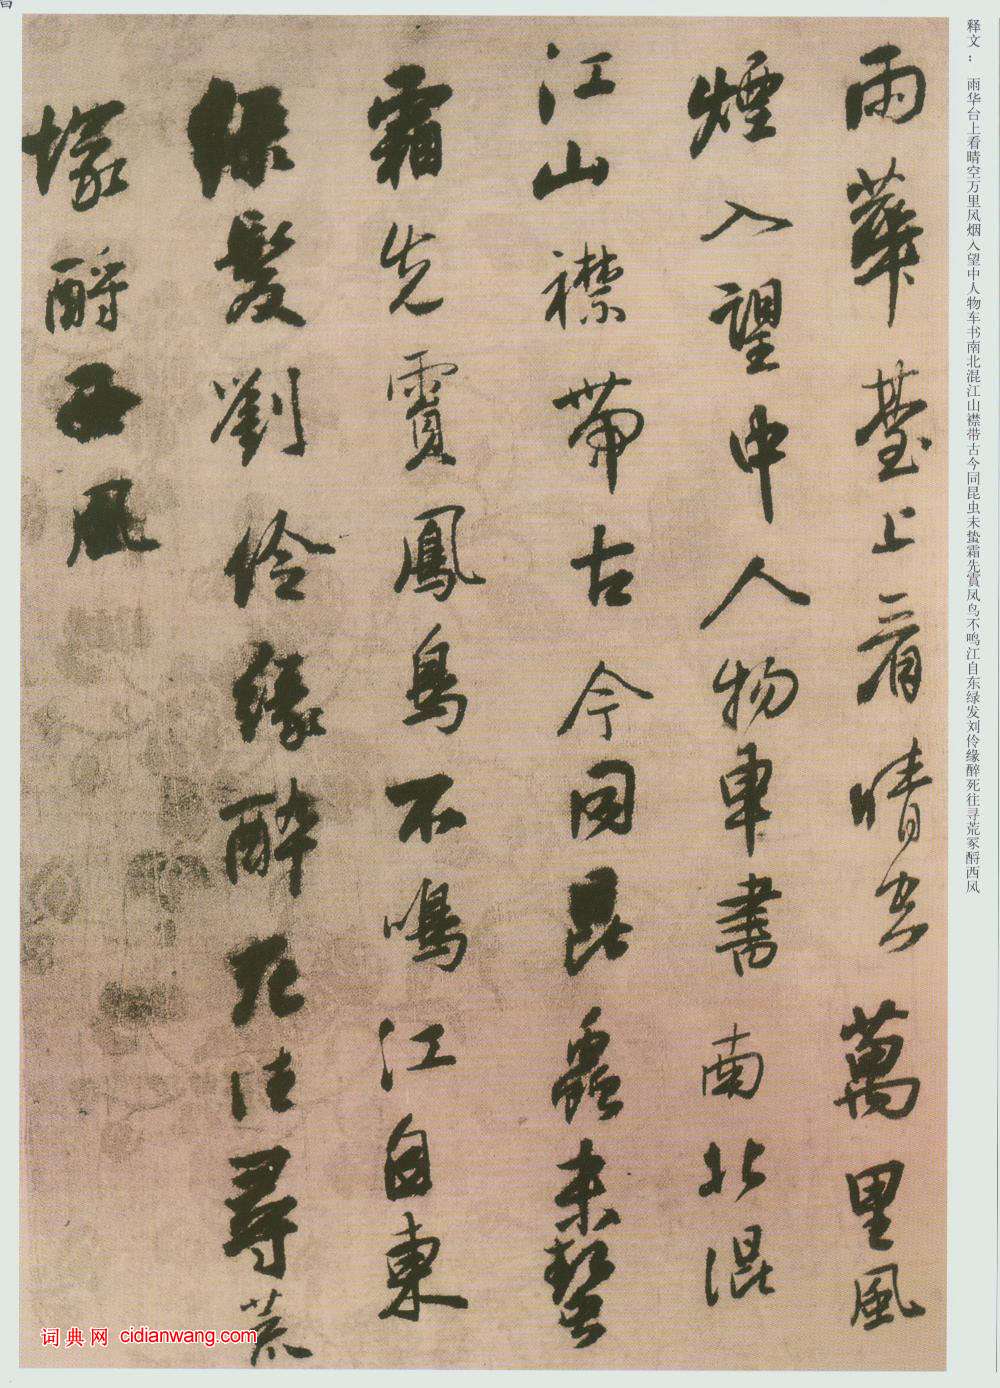 释文： 雨华台上看晴空万里风烟入望中人物车书南北混江山襟带古今同昆虫未蛰霜先霣凤鸟不鸣江自东绿发刘伶缘醉死往寻荒冢酹西风
雨華臺上看晴空萬里風
煙入望中人物車書南北混
江山襟帶古今同昆蟲未蟄
霜先霣鳳鳥不鳴江自東
綠髮劉伶緣醉死往尋荒
塚酹西風
词典网 cidianwang.com